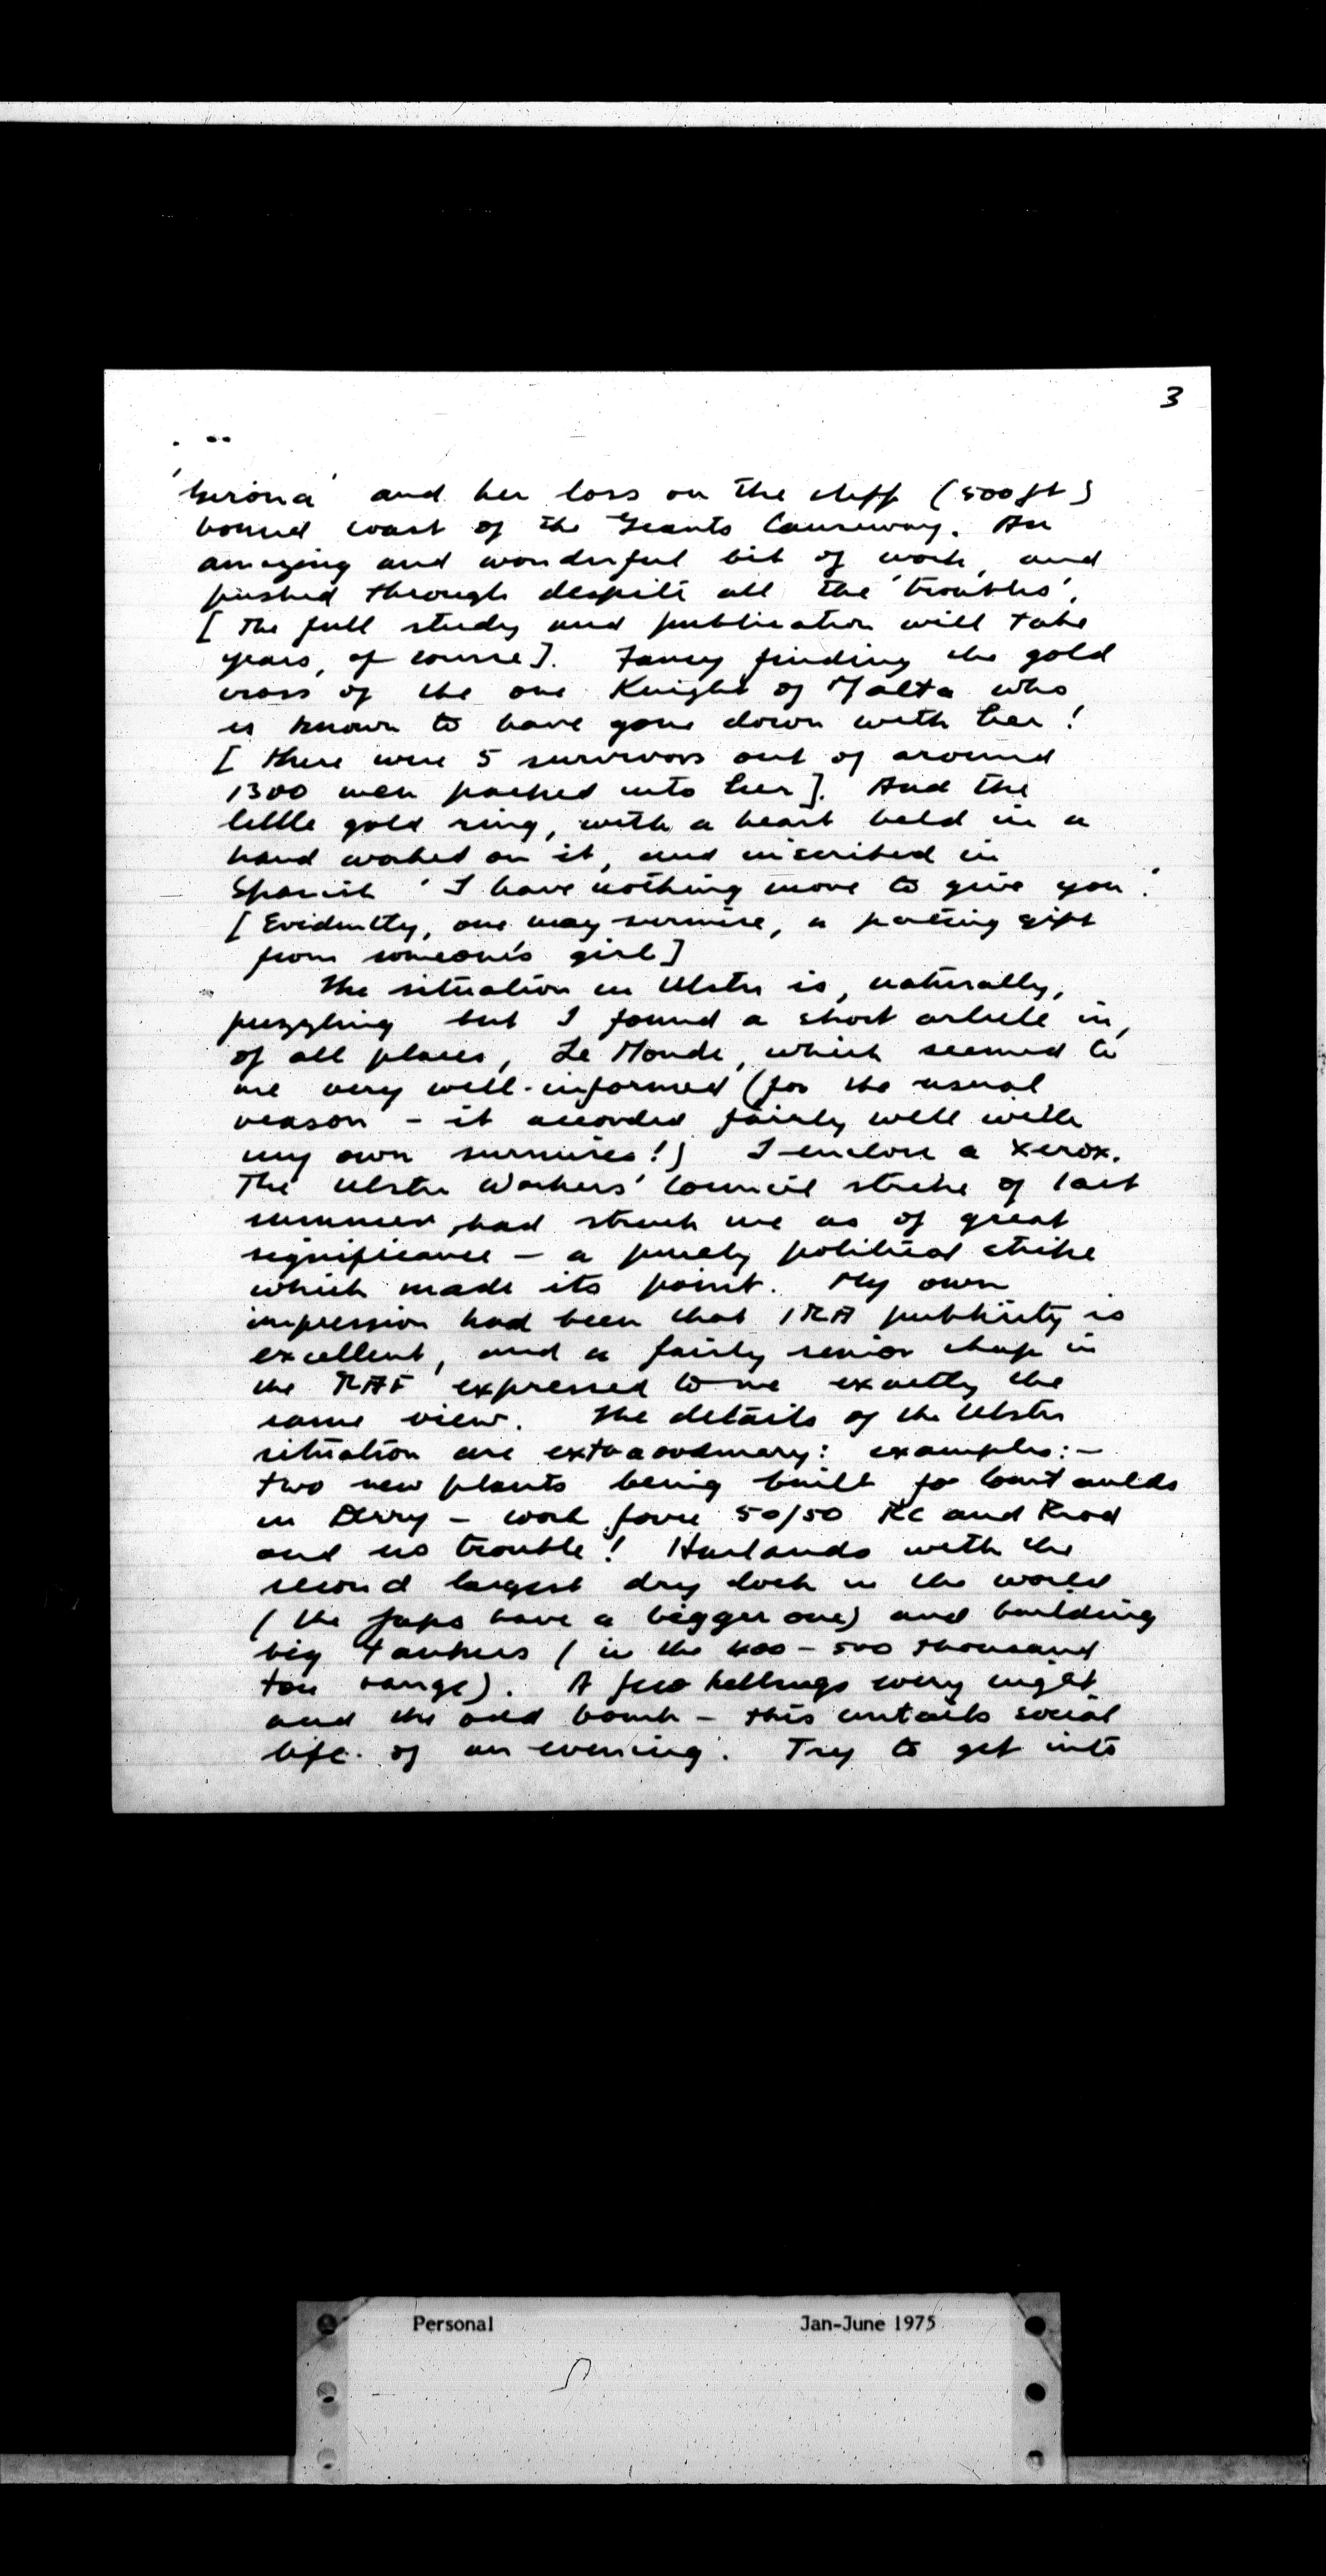 3
'Girona' and her loss on the cliff (500 ft)
bound coast of the Giants Causeway. An
amazing and wonderful bit of work, and
pushed through despite all the 'troubles'.
[The full study and publication will take
years, of course]. Fancy finding the gold
cross of the one Knight of Malta who
is known to have gone down with her!
[There were 5 survivors out of around
1300 men packed into her]. And the
little gold ring, with a heart held in a
hand worked on it, and inscribed in
Spanish 'I have nothing more to give you'.
[Evidently, one may surmise, a parting gift
from someone's girl]
The situation in Ulster is, naturally,
puzzling but I found a short article in,
of all places, Le Monde, which seemed to
me very well-informed (for the usual
reason - it accorded fairly well with
my own surmises!) I enclose a xerox.
The Ulster Workers' Council strike of last
summer had struck me as of great
significance - a purely political strike
which made its point. My own
impression had been that IRA publicity is
excellent, and a fairly senior chap in
the RAF expressed to me exactly the
same view. The details of the Ulster
situation are extraordinary: examples:-
two new plants being built for Courtaulds
in Derry - work force 50/50 RC and Prod
and no trouble! Harlands with the
second largest dry dock in the world
(the Japs have a bigger one) and building
big tankers (in the 400 - 500 thousand
ton range). A few killings every night
and the odd bomb - this curtails social
life of an evening. Try to get into
Personal Jan-June 1975